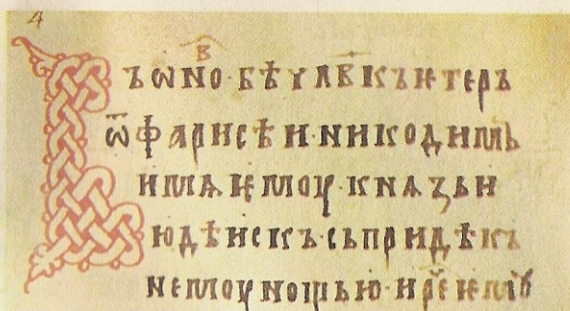 4
Въ ѡно в҃ · бѣ члв҃къ ѥтеръ
ѿ фарисѣи · никодимь
имѧ ѥмоу · кнѧзь и
юдѣискъ · сь придѣ къ
немоу нощью · и ре҃ ѥмꙋ